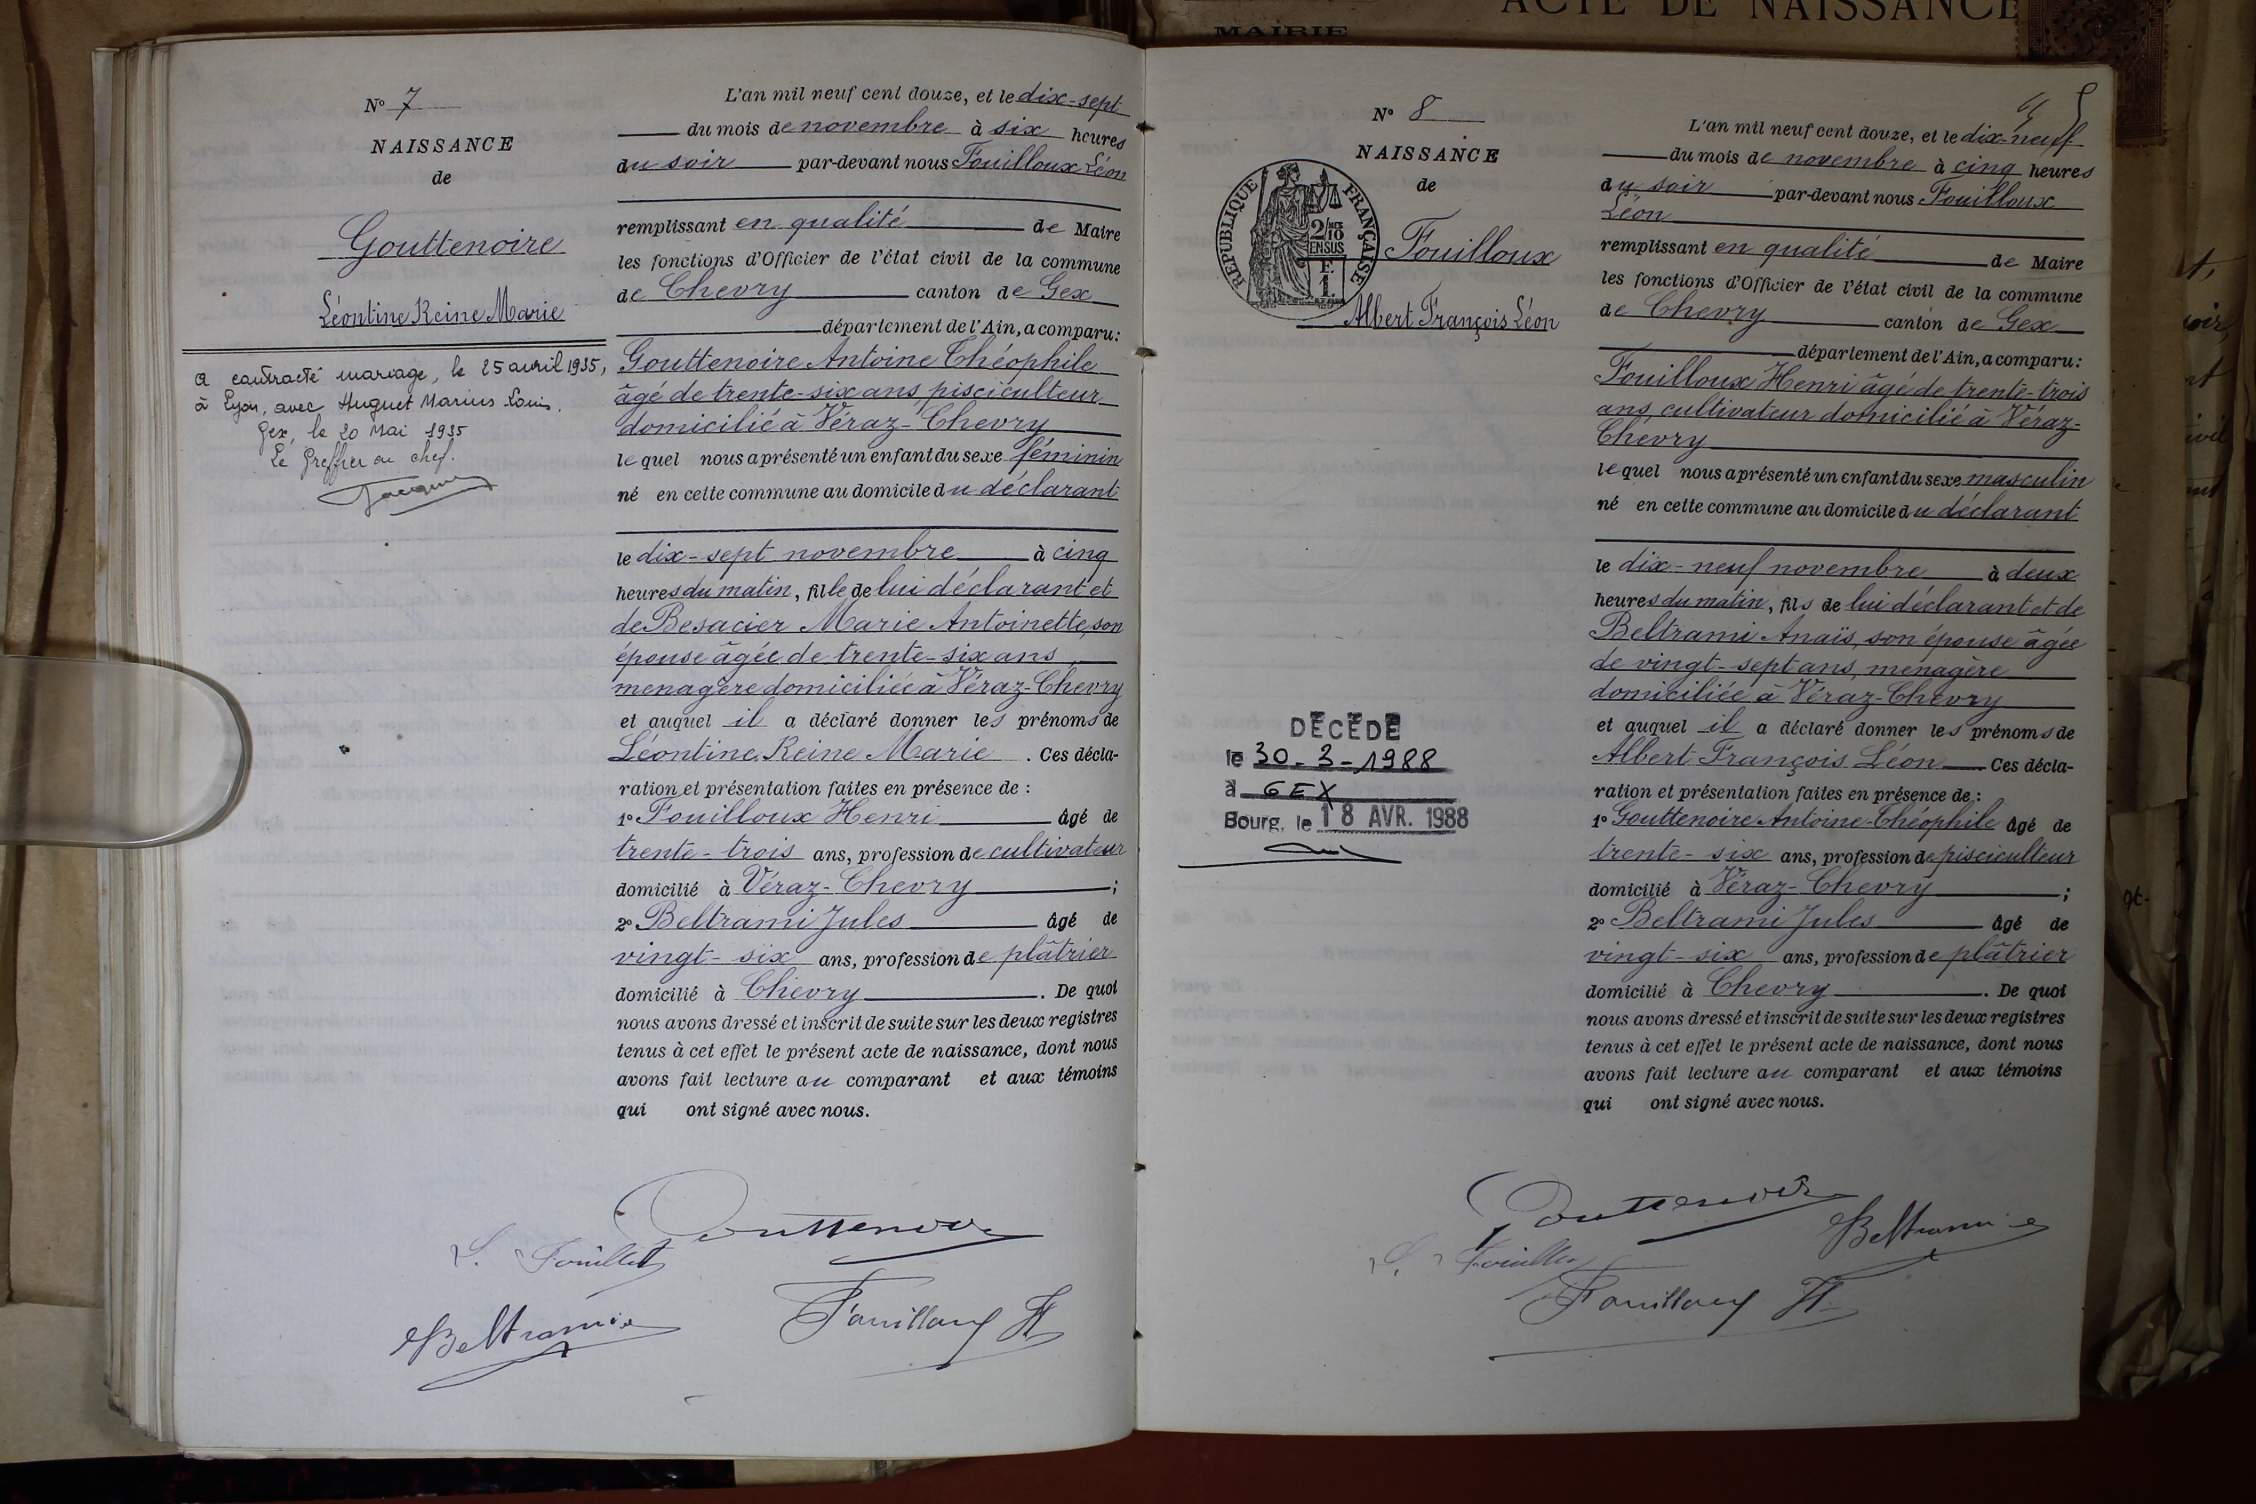 ACTE DE NAISSANCE
MAIRIE
N° 7
NAISSANCE
de
Gouttenoire
Léontine Reine Marie
a contracté mariage, le 25 avril 1935,
à Lyon, avec Huguet Marius Louis.
Gex, le 20 Mai 1935
Le Greffier en chef.
L'an mil neuf cent douze, et le dix-sept
du mois de novembre à six heures
du soir par-devant nous Fouilloux Léon
remplissant en qualité de Maire
les fonctions d'Officier de l'état civil de la commune
de Chevry canton de Gex
département de l'Ain, a comparu:
Gouttenoire Antoine Théophile
âgé de trente-six ans, pisciculteur
domicilié à Véraz-Chevry
lequel nous a présenté un enfant du sexe féminin
né en cette commune au domicile du déclarant
le dix-sept novembre à cinq
heures du matin, fille de lui déclarant et
de Besacier Marie Antoinette, son
épouse âgée de trente-six ans,
menagère domiciliée à Véraz-Chevry
et auquel il a déclaré donner les prénoms de
Léontine Reine Marie. Ces décla-
ration et présentation faites en présence de :
1° Fouilloux Henri âgé de
trente-trois ans, profession de cultivateur
domicilié à Véraz-Chevry ;
2° Beltrami Jules âgé de
vingt-six ans, profession de plâtrier
domicilié à Chevry. De quoi
nous avons dressé et inscrit de suite sur les deux registres
tenus à cet effet le présent acte de naissance, dont nous
avons fait lecture au comparant et aux témoins
qui ont signé avec nous.
Gouttenoire
Beltrami
Fouilloux H
N° 8
NAISSANCE
de
RÉPUBLIQUE FRANÇAISE
2/10 EN SUS
Fouilloux
Albert François Léon
DÉCÉDÉ
le 30-3-1988
à GEX
Bourg, le 18 AVR. 1988
5
L'an mil neuf cent douze, et le dix-neuf
du mois de novembre à cinq heures
du soir par-devant nous Fouilloux
Léon
remplissant en qualité de Maire
les fonctions d'Officier de l'état civil de la commune
de Chevry canton de Gex
département de l'Ain, a comparu:
Fouilloux Henri âgé de trente-trois
ans, cultivateur domicilié à Véraz-
Chevry
lequel nous a présenté un enfant du sexe masculin
né en cette commune au domicile du déclarant
le dix-neuf novembre à deux
heures du matin, fils de lui déclarant et de
Beltrami Anaïs, son épouse âgée
de vingt-sept ans, menagère
domiciliée à Véraz-Chevry
et auquel il a déclaré donner les prénoms de
Albert François Léon Ces décla-
ration et présentation faites en présence de :
1° Gouttenoire Antoine-Théophile âgé de
trente-six ans, profession de pisciculteur
domicilié à Véraz-Chevry ;
2° Beltrami Jules âgé de
vingt-six ans, profession de plâtrier
domicilié à Chevry. De quoi
nous avons dressé et inscrit de suite sur les deux registres
tenus à cet effet le présent acte de naissance, dont nous
avons fait lecture au comparant et aux témoins
qui ont signé avec nous.
Gouttenoire
Beltrami
Fouilloux H